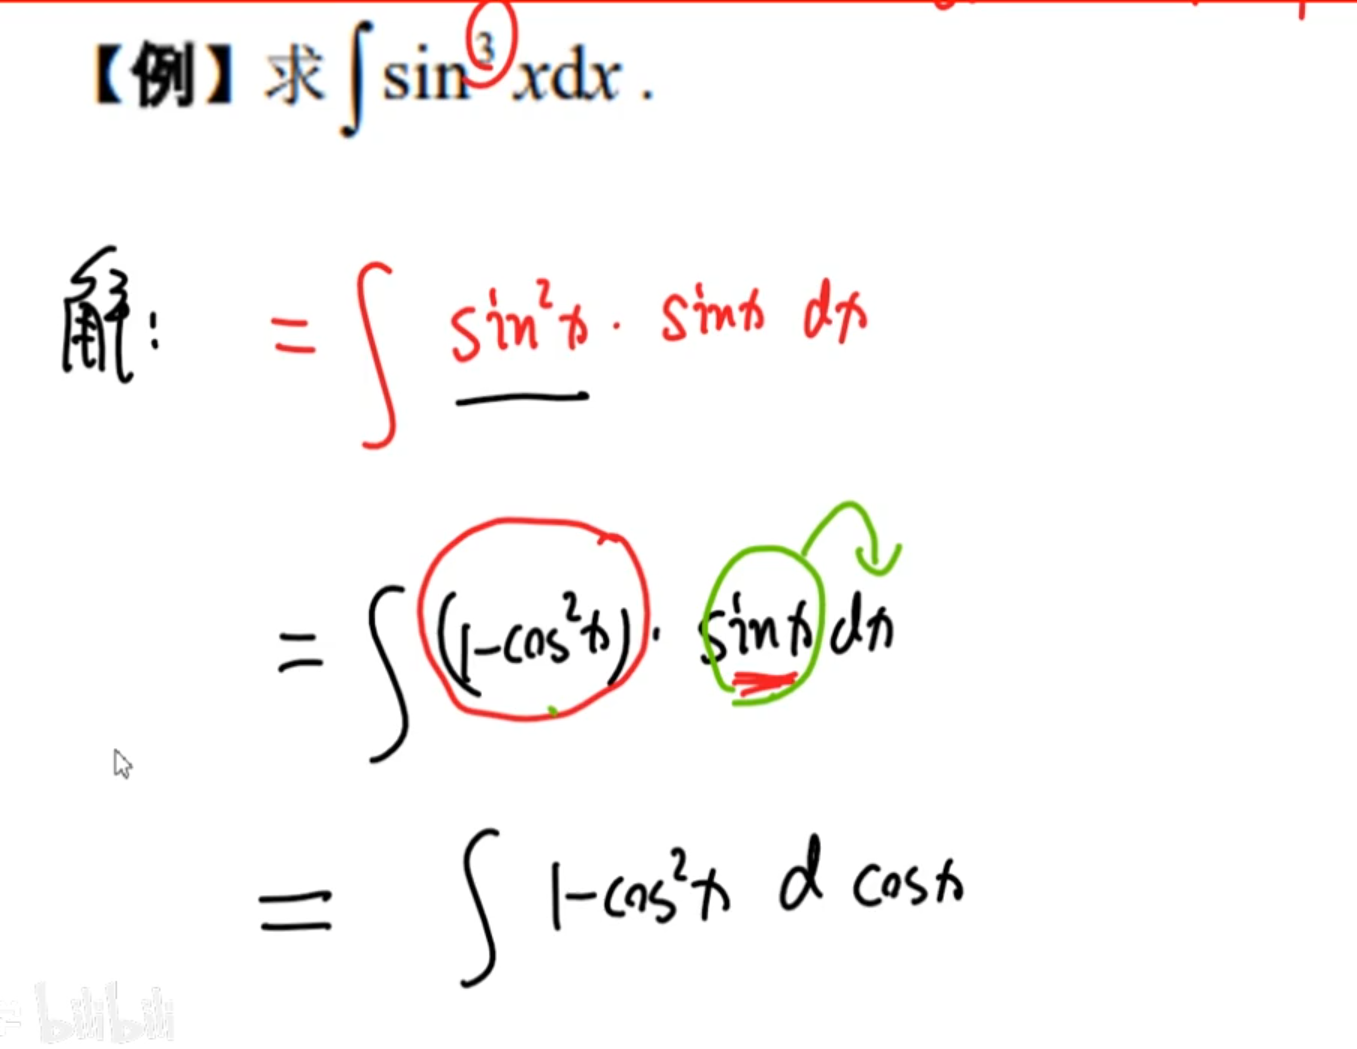 【例】求∫sin³xdx.
解: = ∫ sin²x · sinx dx
= ∫ (1-cos²x) · sinx dx
= ∫ 1-cos²x d cosx
bilibili